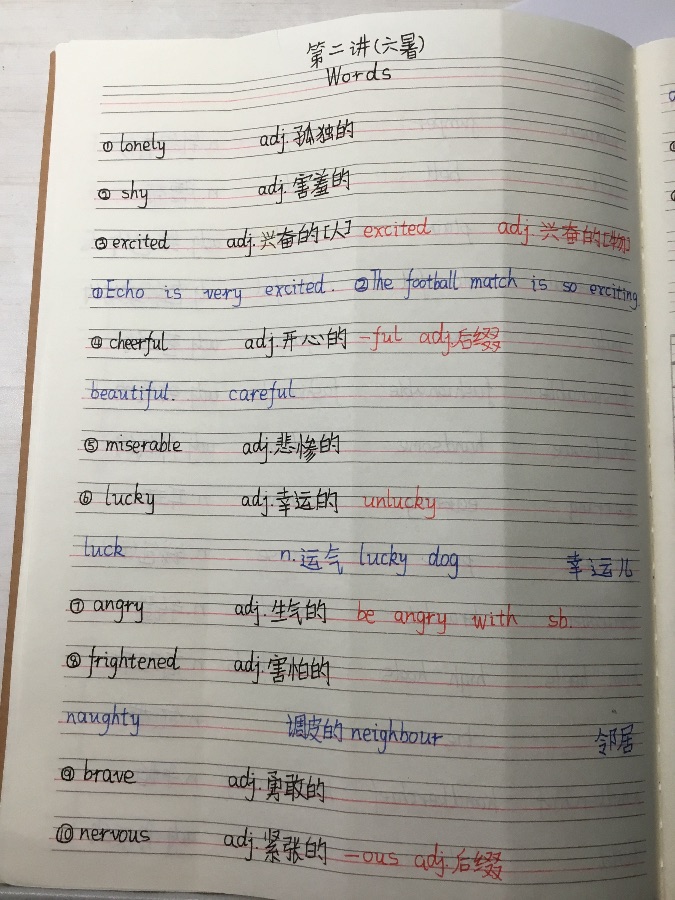 第二讲(六暑)
Words
① lonely adj.孤独的
② shy adj.害羞的
③ excited adj.兴奋的[人] excited adj.兴奋的[物]
①Echo is very excited. ②The football match is so exciting
④ cheerful adj.开心的 -ful adj.后缀
beautiful. careful
⑤ miserable adj.悲惨的
⑥ lucky adj.幸运的 unlucky
luck n.运气 lucky dog 幸运儿
⑦ angry adj.生气的 be angry with sb.
⑧ frightened adj.害怕的
naughty 调皮的 neighbour 邻居
⑨ brave adj.勇敢的
⑩ nervous adj.紧张的 -ous adj.后缀